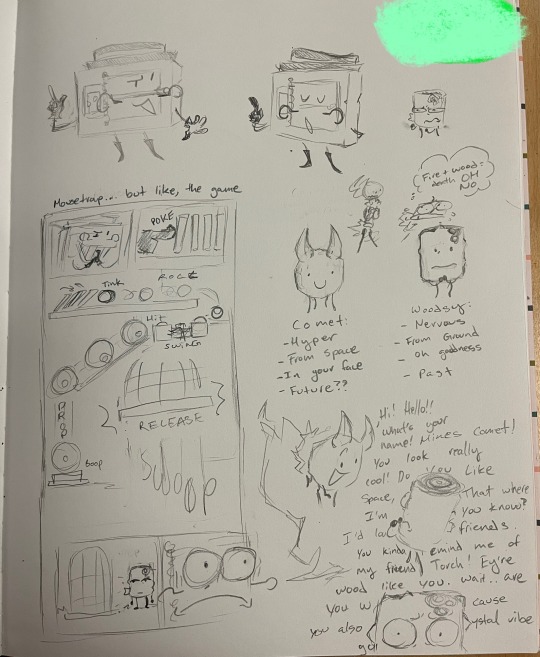 Fire + wood =
death OH
NO
Mousetrap... but like, the game
POKE
Tink
ROLL
Hit
SWING
DROP
RELEASE
boop
Swoop
Comet:
- Hyper
- From space
- In your face
- Future??
Woodsy:
- Nervous
- From Ground
- oh goodness
- Past
Hi! Hello!!
What's your
name! Mines Comet!
You look really
cool! Do you like
space, That where
I'm you know?
I'd friends.
You kinda emind me of
my friend Torch! Ey're
wood like you. wait.. are
you w cause
you also ystal vibe